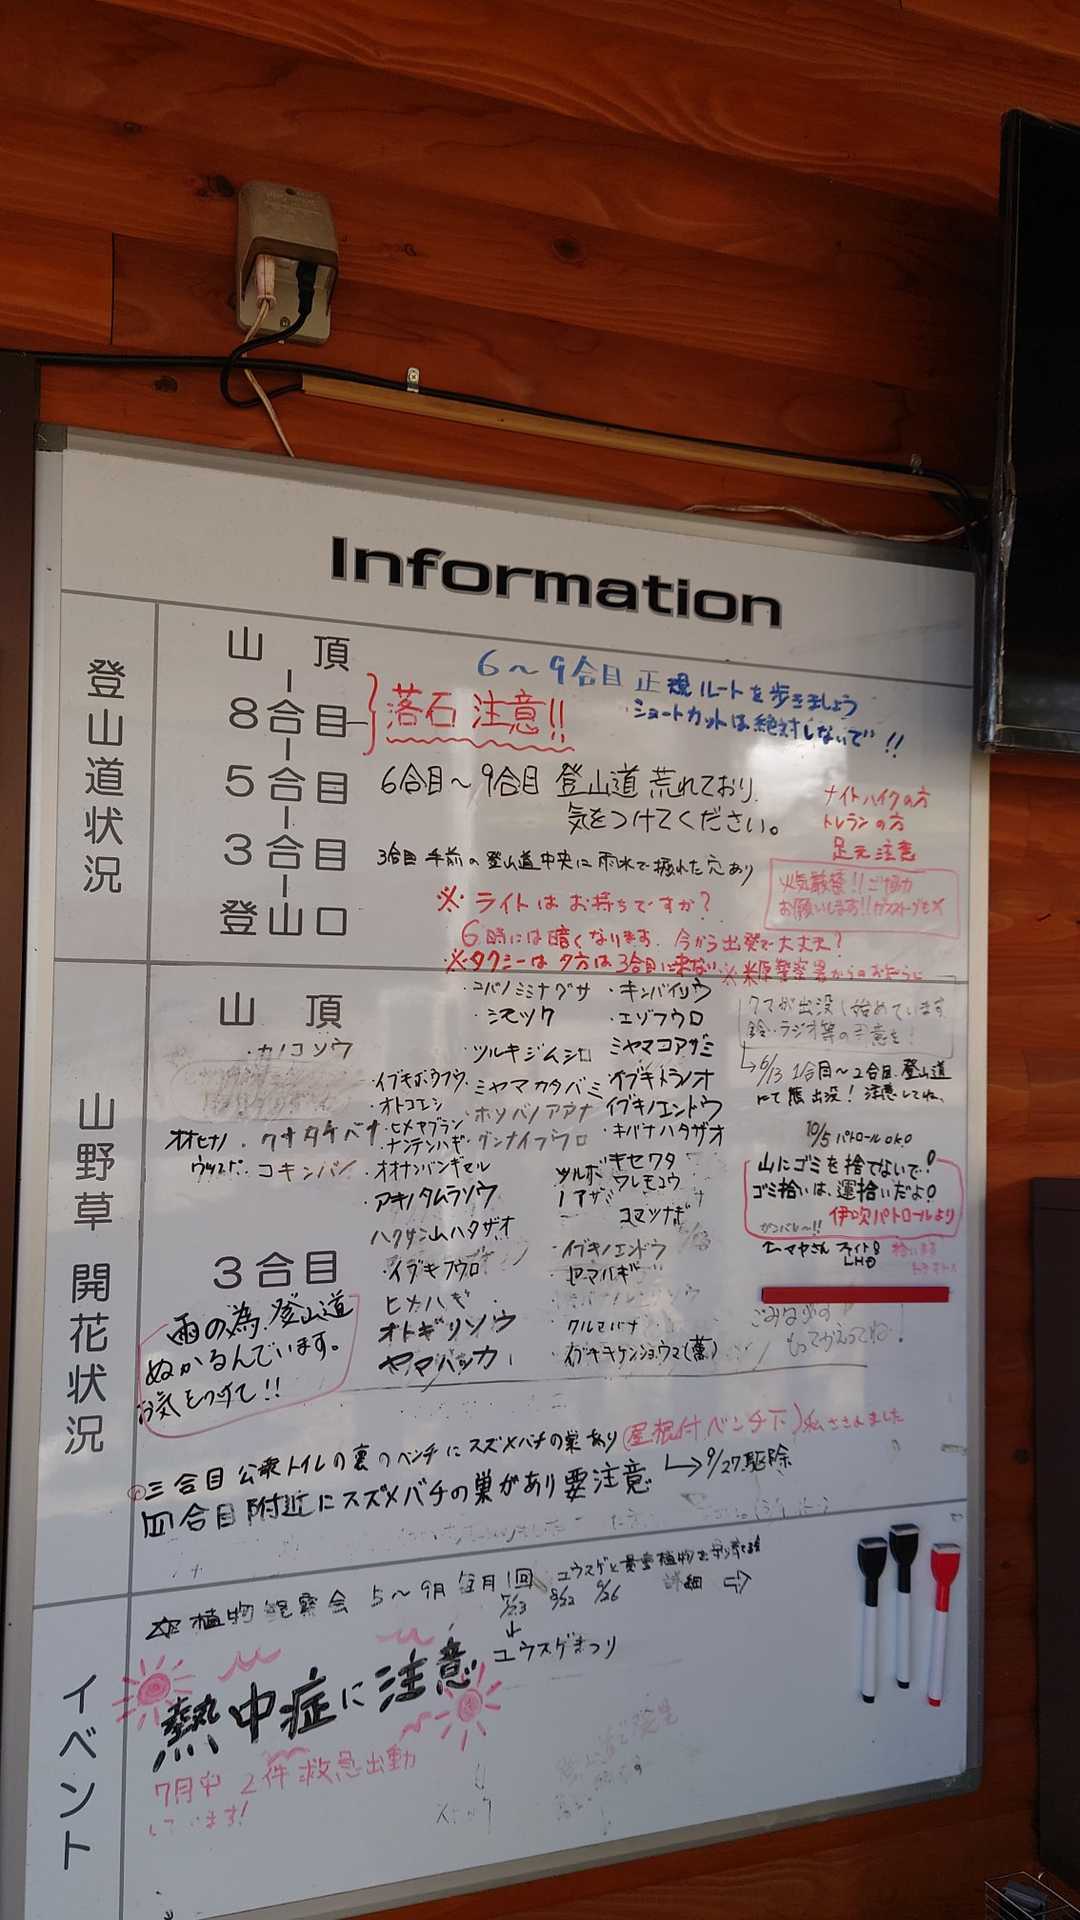 Information
登山道状況
山頂
8合目
5合目
3合目
登山口
落石注意!!
6～9合目 正規ルートを歩きましょう
ショートカットは絶対しないで!!
6合目～9合目 登山道 荒れており
気をつけてください。
3合目 手前の登山道中央に雨水で掘れた穴あり
ナイトハイクの方
トレランの方
足元注意
火気厳禁!! ご協力
お願いします!!
※ライトはお持ちですか?
6時には暗くなります。今から出発で大丈夫?
※タクシーは夕方は3合目に来ない
※米原警察署からのお知らせ
クマが出没し始めています
鈴・ラジオ等の用意を!
6/13 1合目～2合目 登山道
にて熊出没! 注意してね、
10/5 パトロール
山にゴミを捨てないで!
ゴミ拾いは、運拾いだよ!
伊吹パトロールより
ガンバレ～!!
ごみは必ず
もってかえってね!
山野草 開花状況
山頂
・カノコソウ
オオヒナノ
ウスツボ
・クサタチバナ
コキンバイ
・コバノミミナグサ
・シモツケ
ツルキジムシロ
・イブキボウフウ
・オトコエシ
・ヒメヤブラン
・ナンテンハギ
・アキノタムラソウ
ハクサンハタザオ
・イブキフウロ
ヒメハギ
オトギリソウ
ヤマハッカ
・ミヤマカタバミ
・グンナイフウロ
・キンバイソウ
・エゾフウロ
ミヤマコアザミ
・イブキトラノオ
イブキノエンドウ
・キバナハタザオ
ツルボ
キセワタ
ノアザミ
ワレモコウ
コマツナギ
・イブキノエンドウ
・ヤマハギ
・クルマバナ
3合目
雨の為、登山道
ぬかるんでいます。
お気をつけて!!
三合目 公衆トイレの裏のベンチにスズメバチの巣あり(屋根付ベンチ下)私ささされました
四合目附近にスズメバチの巣があり要注意
→9/27駆除
イベント
☆植物観察会 5～9月 毎月1回
7/23 8/22 9/26
詳細 ⇨
ユウスゲまつり
熱中症に注意
7月中 2件 救急出動
しています!